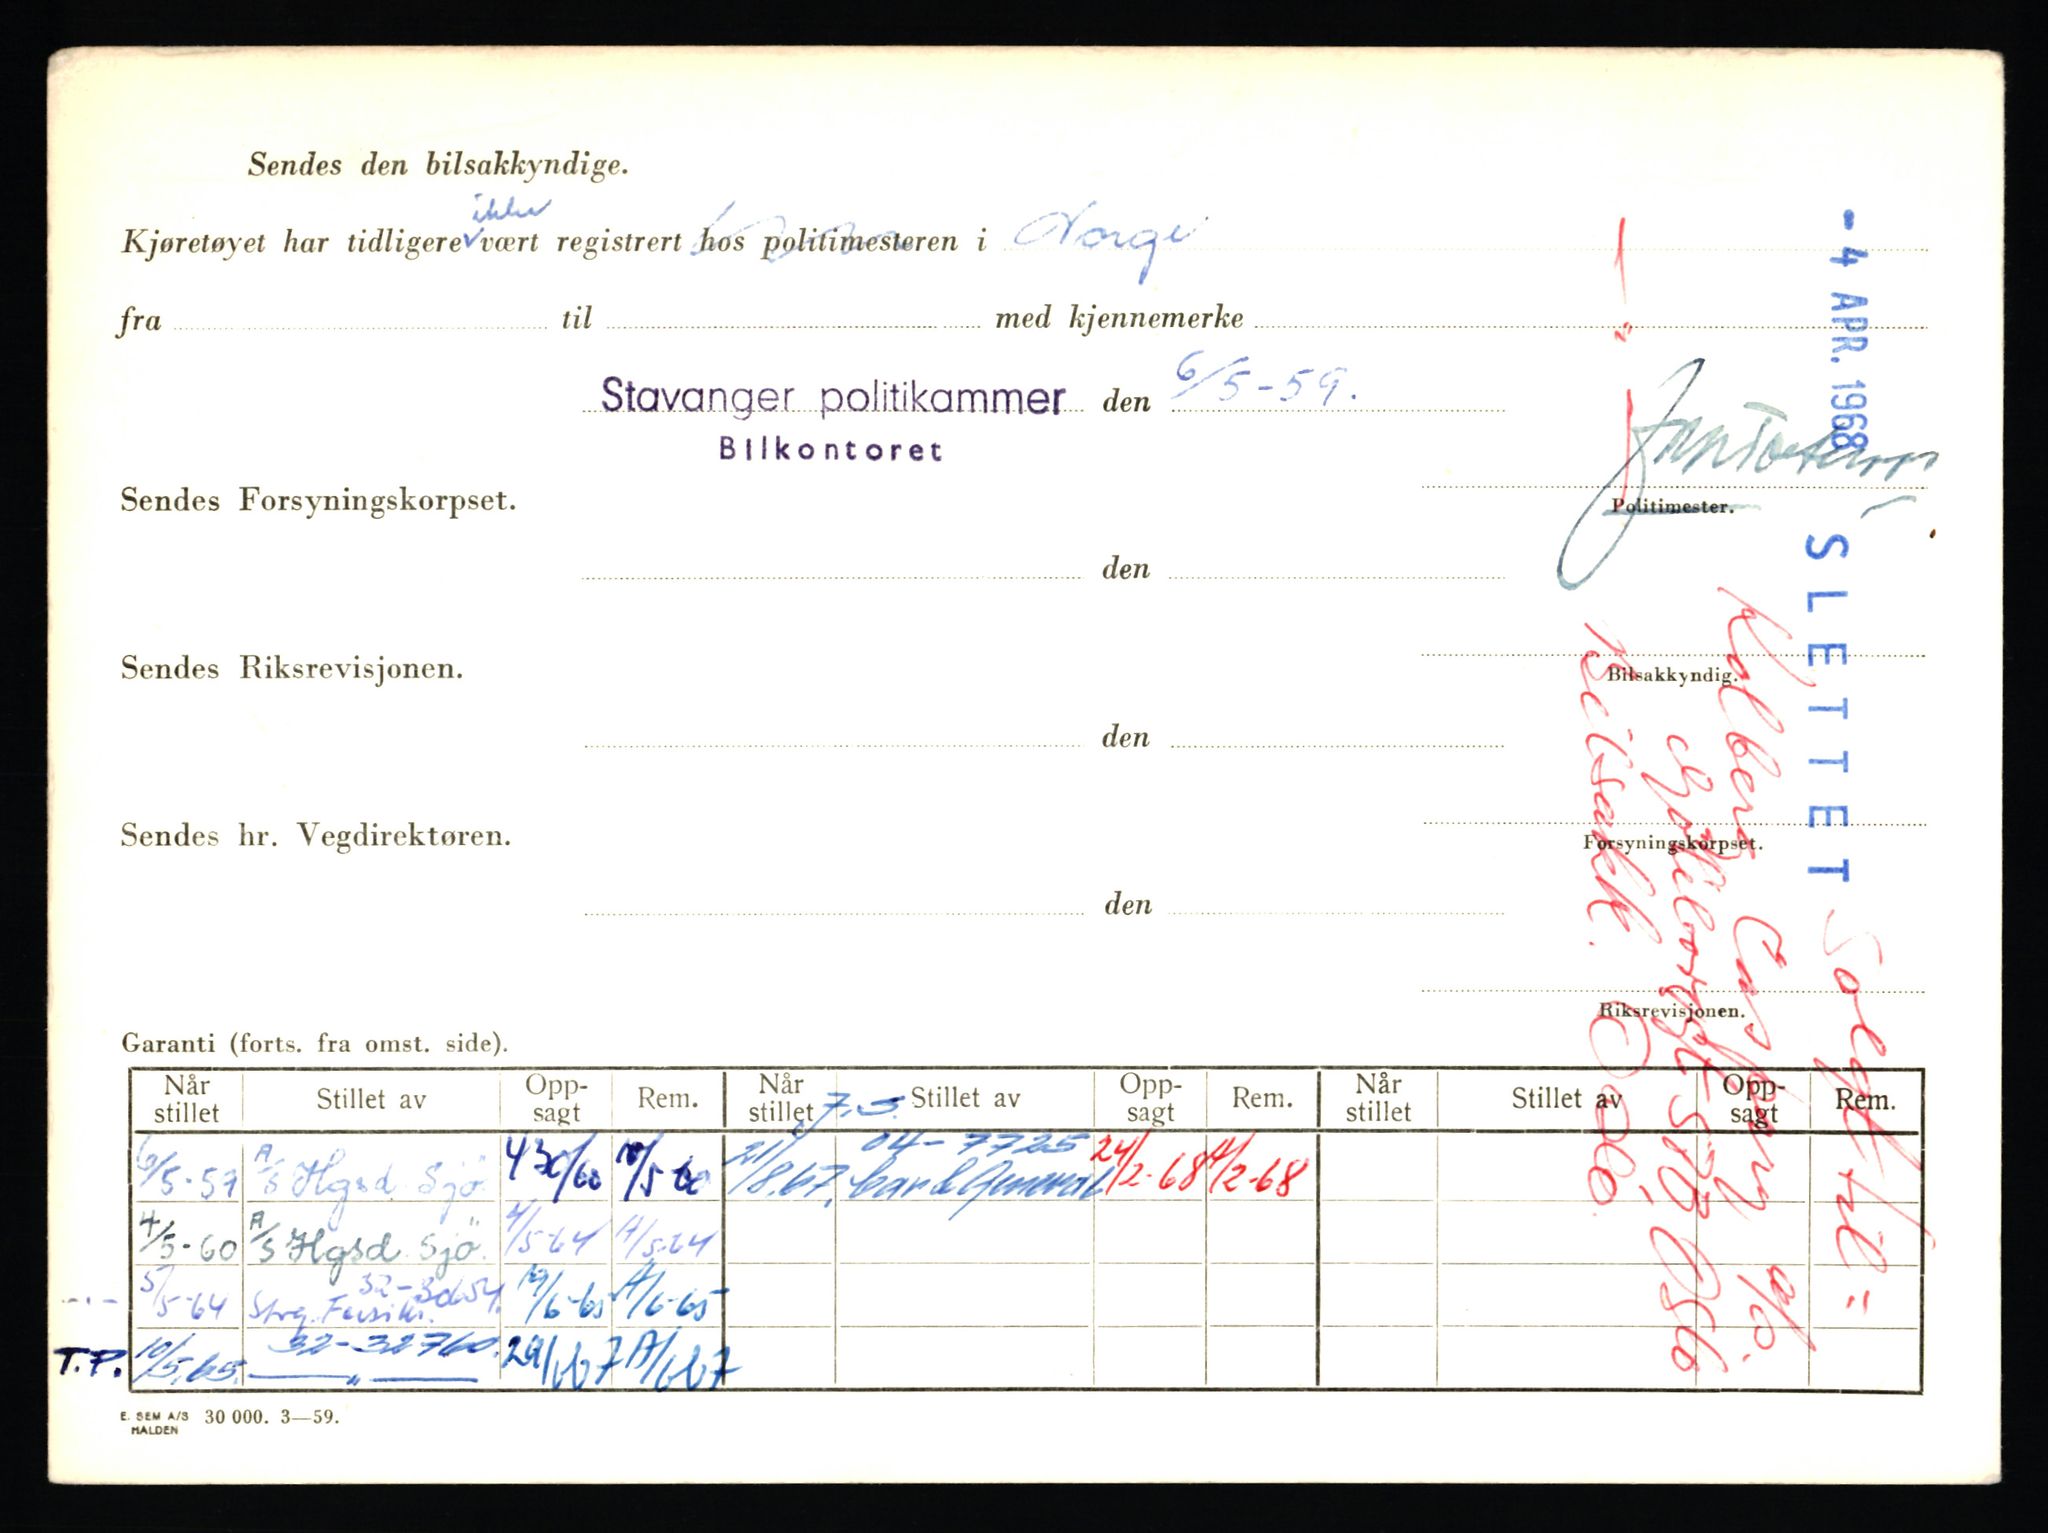 Sendes den bilsakkyndige.
ikke
Kjøretøyet har tidligere vært registrert hos politimesteren i Norge
fra til med kjennemerke
Stavanger politikammer den 6/5-59.
Bilkontoret
Sendes Forsyningskorpset.
Politimester.
den
Sendes Riksrevisjonen.
Bilsakkyndig.
den
Sendes hr. Vegdirektøren.
Forsyningskorpset.
den
Riksrevisjonen.
- 4 APR. 1968
SLETTET
Solgt til =
Kolberg Caspary a/s.
Oslo
Bilsakk. Oslo.
Garanti (forts. fra omst. side).
Når stillet Stillet av Oppsagt Rem. Når stillet Stillet av Oppsagt Rem. Når stillet Stillet av Oppsagt Rem.
6/5-59 A/S Hgsd. Sjö 04-7725 24/2-68 /2-68
21/8.67.
4/5-60 A/S Hgsd. Sjö. 4/5-64 A/5-64
5/5-64 32-30654. 19/6-65 A/6-65
T.P. 10/5.65. 32-32760. — " — 29/6 67 A/6 67
E. SEM A/S HALDEN 30 000. 3—59.